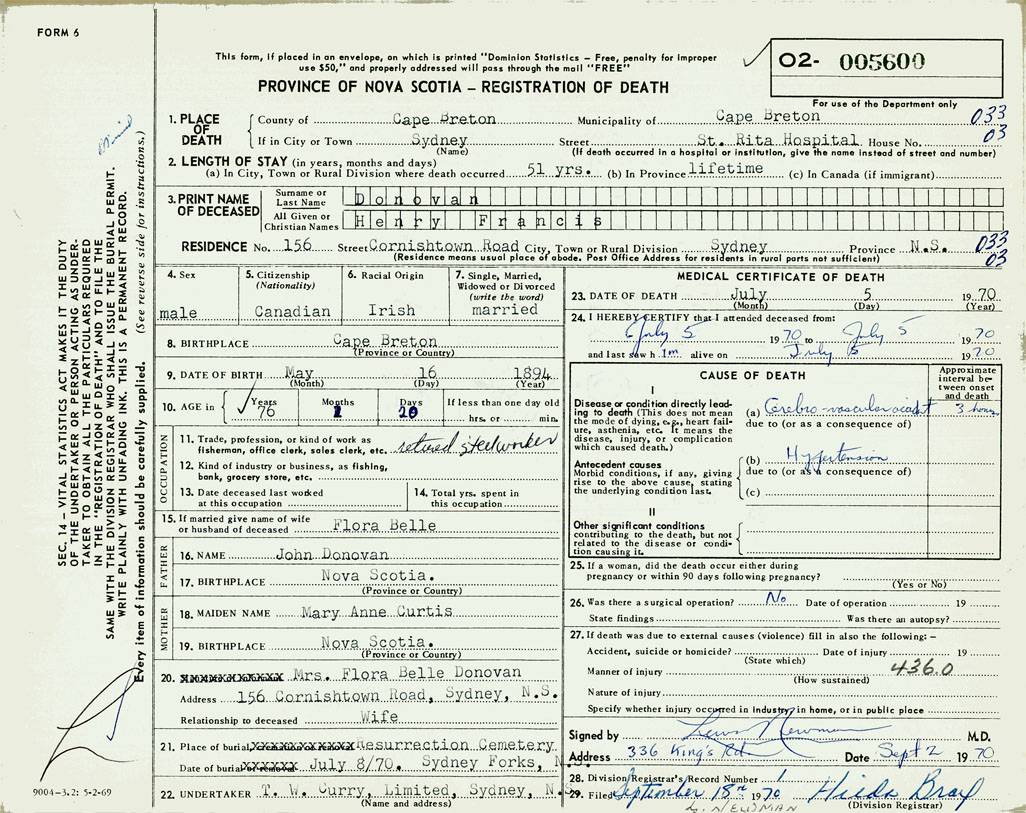 FORM 6
This form, if placed in an envelope, on which is printed "Dominion Statistics – Free, penalty for improper
use $50," and properly addressed will pass through the mail "FREE"
PROVINCE OF NOVA SCOTIA – REGISTRATION OF DEATH
O2- 005600
For use of the Department only
SEC. 14 – VITAL STATISTICS ACT MAKES IT THE DUTY
OF THE UNDERTAKER OR PERSON ACTING AS UNDER-
TAKER TO OBTAIN ALL THE PARTICULARS REQUIRED
IN THE "REGISTRATION OF DEATH" AND TO FILE THE
SAME WITH THE DIVISION REGISTRAR WHO SHALL ISSUE THE BURIAL PERMIT.
WRITE PLAINLY WITH UNFADING INK. THIS IS A PERMANENT RECORD.
Every item of information should be carefully supplied. (See reverse side for instructions.)
1. PLACE OF DEATH
County of Cape Breton Municipality of Cape Breton 033
If in City or Town Sydney Street St. Rita Hospital House No. 03
(Name) (If death occurred in a hospital or institution, give the name instead of street and number)
2. LENGTH OF STAY (in years, months and days)
(a) In City, Town or Rural Division where death occurred 51 yrs. (b) In Province lifetime (c) In Canada (if immigrant)
3. PRINT NAME OF DECEASED
Surname or Last Name Donovan
All Given or Christian Names Henry Francis
RESIDENCE No. 156 Street Cornishtown Road City, Town or Rural Division Sydney Province N.S. 033
(Residence means usual place of abode. Post Office Address for residents in rural parts not sufficient) 03
4. Sex
male
5. Citizenship
(Nationality)
Canadian
6. Racial Origin
Irish
7. Single, Married,
Widowed or Divorced
(write the word)
married
8. BIRTHPLACE Cape Breton
(Province or Country)
9. DATE OF BIRTH May 16 1894
(Month) (Day) (Year)
10. AGE in Years Months Days If less than one day old
76 1 20 hrs. or min.
OCCUPATION
11. Trade, profession, or kind of work as
fisherman, office clerk, sales clerk, etc. retired steelworker
12. Kind of industry or business, as fishing,
bank, grocery store, etc.
13. Date deceased last worked
at this occupation
14. Total yrs. spent in
this occupation
15. If married give name of wife
or husband of deceased Flora Belle
FATHER
16. NAME John Donovan
17. BIRTHPLACE Nova Scotia.
(Province or Country)
MOTHER
18. MAIDEN NAME Mary Anne Curtis
19. BIRTHPLACE Nova Scotia.
(Province or Country)
20. Mrs. Flora Belle Donovan
Address 156 Cornishtown Road, Sydney, N.S.
Relationship to deceased Wife
21. Place of burial Resurrection Cemetery
Date of burial July 8/70. Sydney Forks, N.S.
22. UNDERTAKER T. W. Curry, Limited, Sydney, N.S.
(Name and address)
9004-3.2: 5-2-69
MEDICAL CERTIFICATE OF DEATH
23. DATE OF DEATH July 5 1970
(Month) (Day) (Year)
24. I HEREBY CERTIFY that I attended deceased from:
July 5 1970 to July 5 1970
and last saw him alive on July 5 1970
CAUSE OF DEATH
Approximate
interval be-
tween onset
and death
I
Disease or condition directly lead-
ing to death (This does not mean
the mode of dying, e.g., heart fail-
ure, asthenia, etc. It means the
disease, injury, or complication
which caused death.)
(a) Cerebro-vascular accident 3 hours
due to (or as a consequence of)
Antecedent causes
Morbid conditions, if any, giving
rise to the above cause, stating
the underlying condition last.
(b) Hypertension
due to (or as a consequence of)
(c)
II
Other significant conditions
contributing to the death, but not
related to the disease or condi-
tion causing it.
25. If a woman, did the death occur either during
pregnancy or within 90 days following pregnancy?
(Yes or No)
26. Was there a surgical operation? No Date of operation 19
State findings Was there an autopsy?
27. If death was due to external causes (violence) fill in also the following: –
Accident, suicide or homicide? Date of injury 19
(State which)
Manner of injury 436.0
(How sustained)
Nature of injury
Specify whether injury occurred in industry, in home, or in public place
Signed by Lewis Newman M.D.
Address 336 King's Rd Date Sept 2 1970
28. Division Registrar's Record Number 1
29. Filed September 18th 1970 Hilda Bray
(Division Registrar)
L. NEWMAN